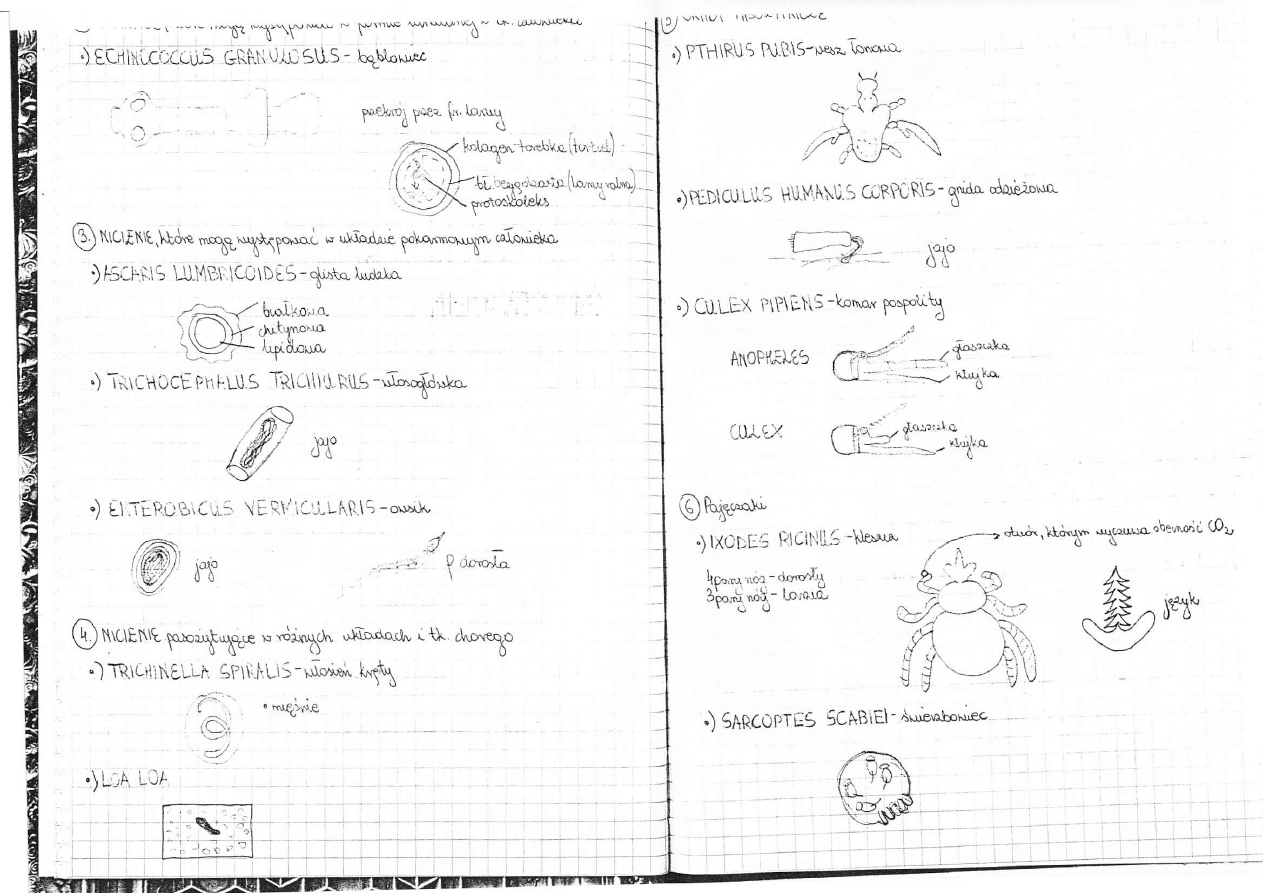 które mogą występować w
•) ECHINOCOCCUS GRANULOSUS - bąblowiec
przekrój przez fr. larwy
kolagen-torebka
protoskoleks
3. NICIENIE, które mogą występować w układzie pokarmowym człowieka
•) ASCARIS LUMBRICOIDES - glista ludzka
białkowa
chitynowa
lipidowa
•) TRICHOCEPHALUS TRICHIURUS - włosogłówka
jajo
•) ENTEROBICUS VERMICULARIS - owsik
jajo
p dorosła
4. NICIENIE pasożytujące w różnych układach i tk. chorego
•) TRICHINELLA SPIRALIS - włosień kręty
• mięśnie
•) LOA LOA
5
•) PTHIRUS PUBIS - wesz łonowa
•) PEDICULUS HUMANUS CORPORIS - gnida odzieżowa
jajo
•) CULEX PIPIENS - komar pospolity
ANOPHELES
głaszczka
kłujka
CULEX
głaszczka
kłujka
6 Pajęczaki
•) IXODES RICINUS - kleszcz
otwór, którym wyczuwa obecność CO2
4 pary nóg - dorosły
3 pary nóg - larwa
język
•) SARCOPTES SCABIEI - świerzbowiec